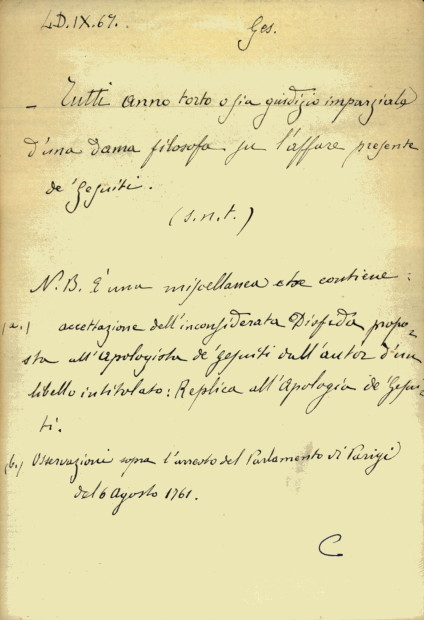 LD.IX.67.
Ges.
- Tutti anno torto o sia giudizio imparziale
d'una dama filosofa su l'affare presente
de' Gesuiti.
(s.n.t.)
N.B. È una miscellanea che contiene:
(a.) accettazione dell'inconsiderata Disfida propo-
sta all'Apologista de' gesuiti dall'autor d'un
libello intitolato: Replica all'Apologia de' Gesui-
ti.
(b.) Osservazioni sopra l'arresto del Parlamento di Parigi
del 6 Agosto 1761.
C